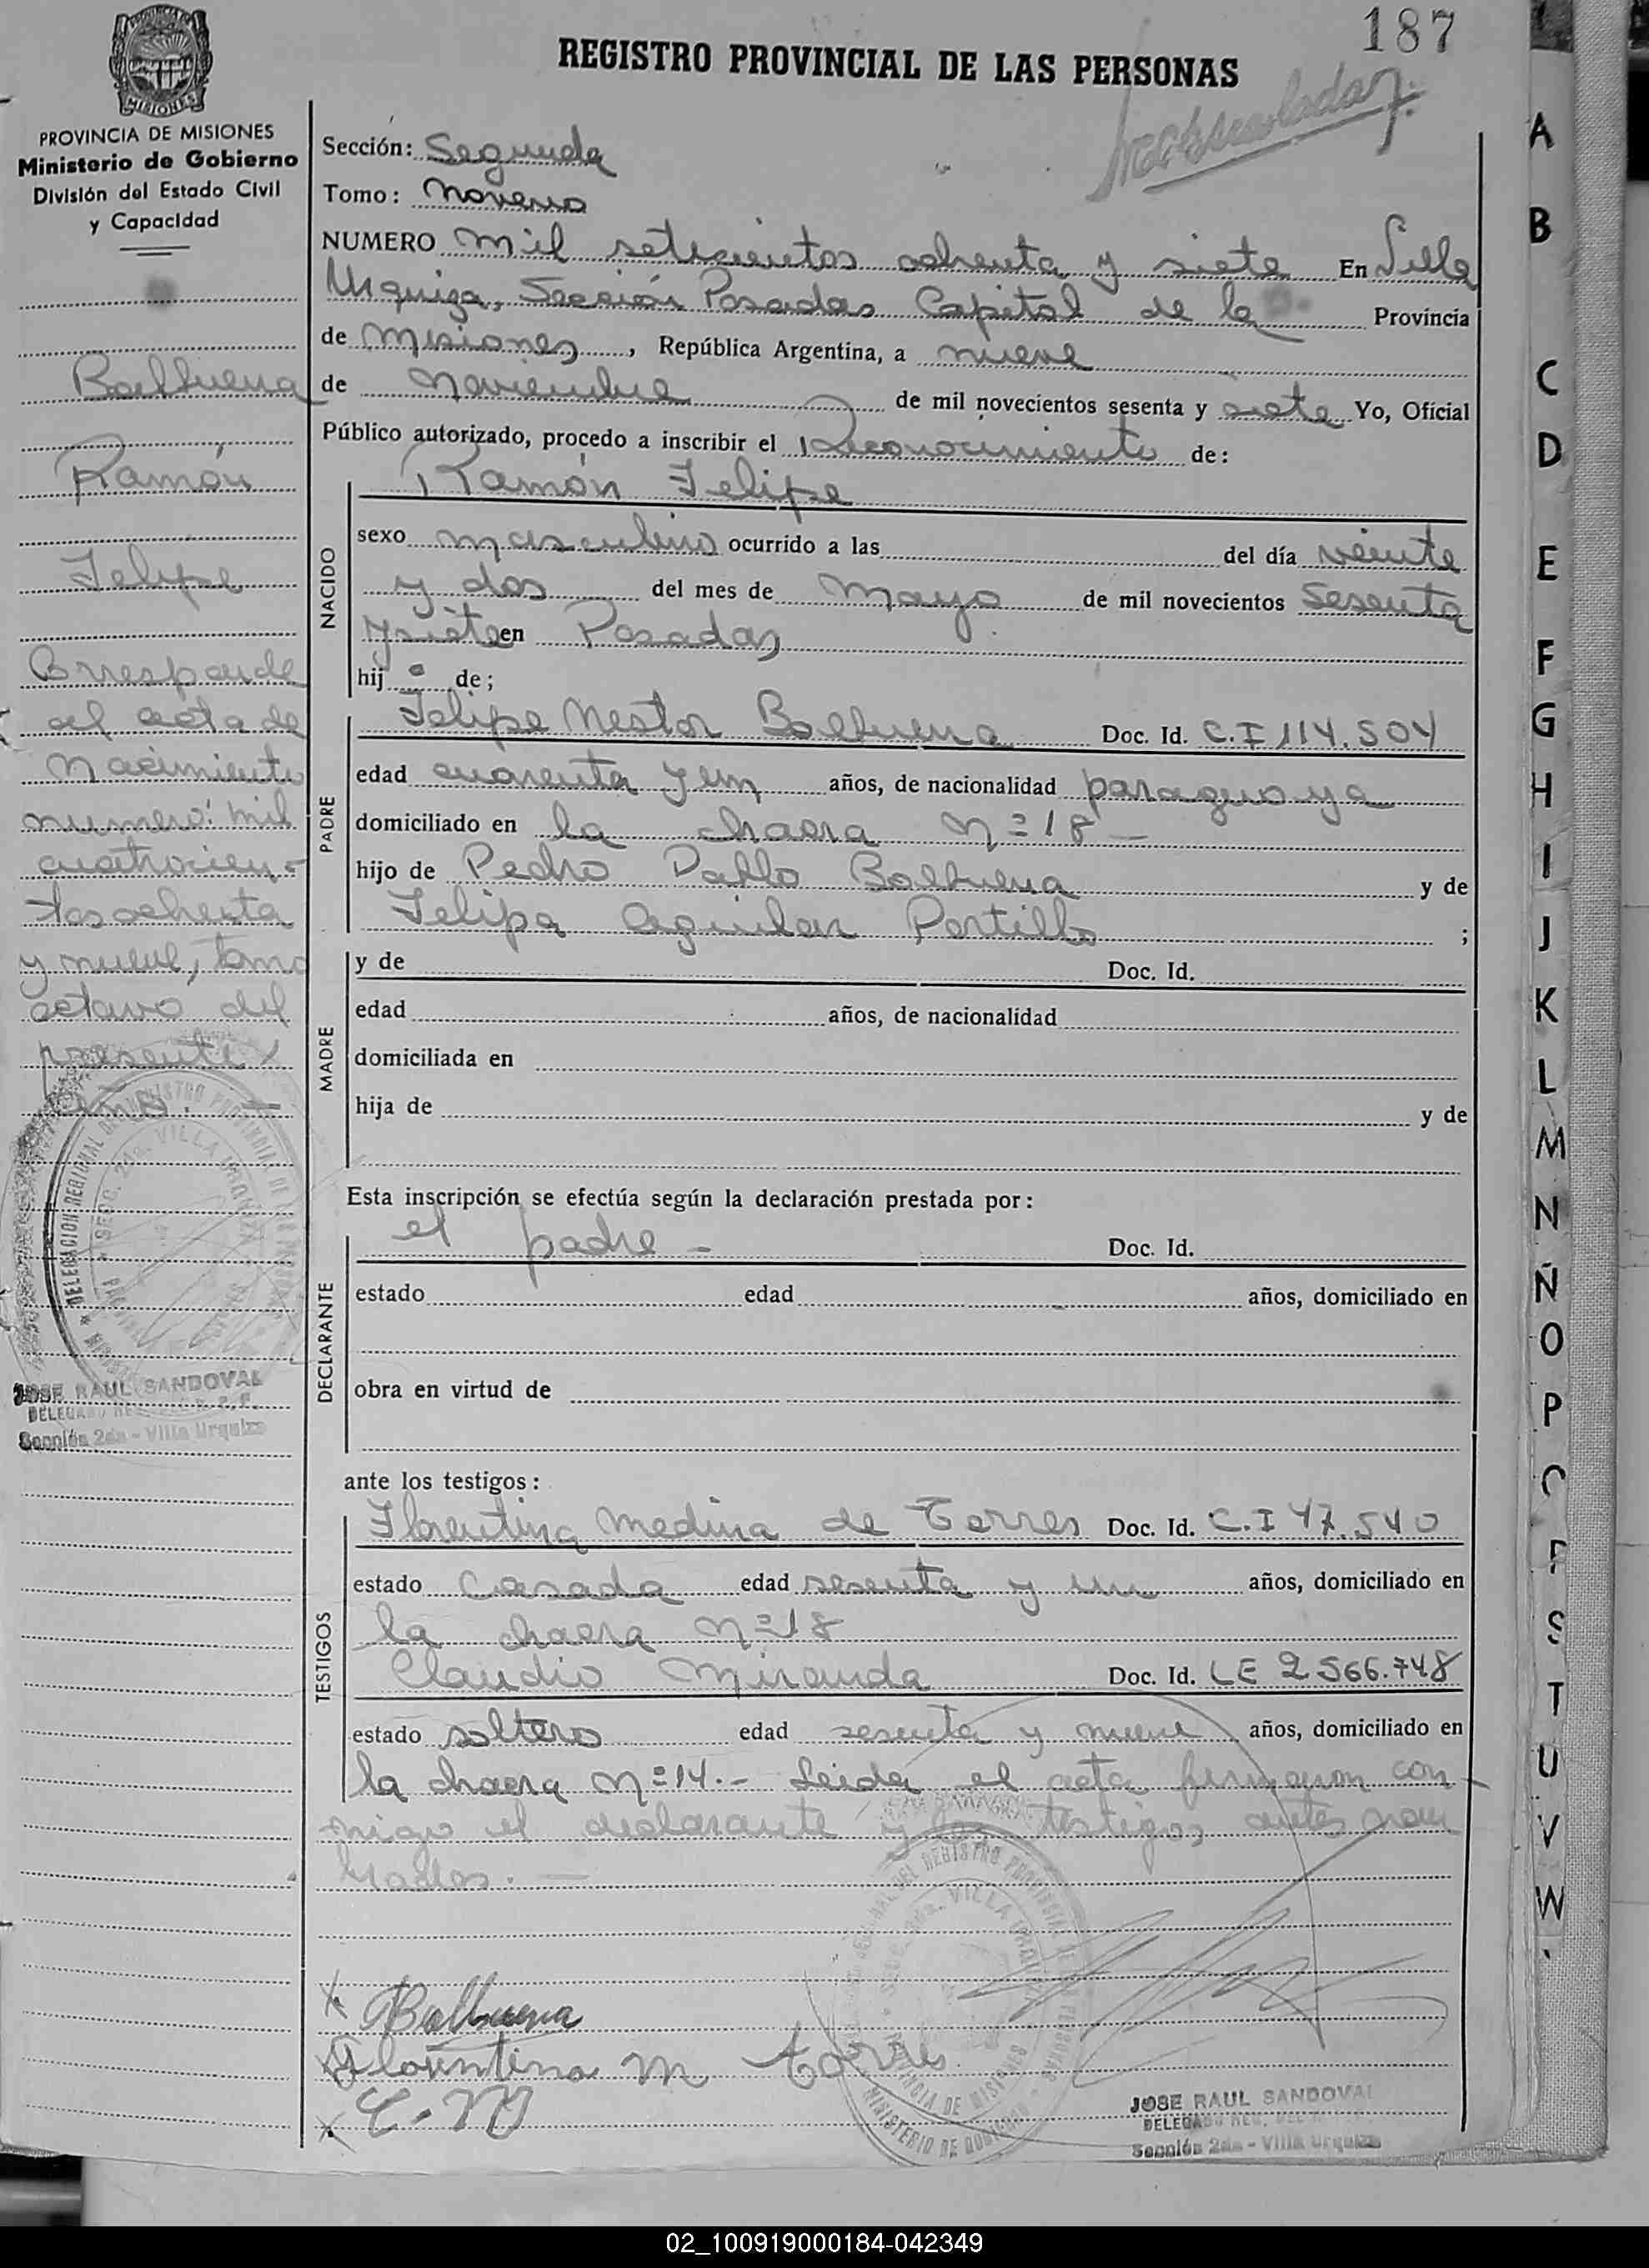 187
REGISTRO PROVINCIAL DE LAS PERSONAS
PROVINCIA DE MISIONES
Ministerio de Gobierno
División del Estado Civil
y Capacidad
Balbuena
Ramón
Felipe
Corresponde
al acta de
nacimiento
numero: mil
cuatrocien-
tos ochenta
y nueve, tomo
octavo del
presente
año. —
JOSE RAUL SANDOVAL
Sección 2da - Villa Urquiza
Sección: Segunda
Tomo: noveno
NUMERO mil setecientos ochenta y siete En Villa
Urquiza, Sección Posadas Capital de la Provincia
de Misiones, República Argentina, a nueve
de noviembre de mil novecientos sesenta y siete Yo, Oficial
Público autorizado, procedo a inscribir el Reconocimiento de:
NACIDO
Ramón Felipe
sexo masculino ocurrido a las del día veinte
y dos del mes de mayo de mil novecientos sesenta
y siete en Posadas,
hijo de;
PADRE
Felipe Nestor Balbuena Doc. Id. C.I 114.504
edad cuarenta y un años, de nacionalidad paraguaya
domiciliado en la chacra nº 18 —
hijo de Pedro Pablo Balbuena y de
Felipa Aguilar Portillo ;
MADRE
y de Doc. Id.
edad años, de nacionalidad
domiciliada en
hija de y de
Esta inscripción se efectúa según la declaración prestada por:
DECLARANTE
el padre - Doc. Id.
estado edad años, domiciliado en
obra en virtud de
ante los testigos:
TESTIGOS
Florentina Medina de Torres Doc. Id. C.I 47.540
estado Casada edad sesenta y un años, domiciliado en
la chacra nº 18
Claudio Miranda Doc. Id. LE 2566.748
estado soltero edad sesenta y nueve años, domiciliado en
la chacra nº 14.- Leida el acta firmaron con-
migo el declarante y los testigos antes nom
brados. —
Balbuena
Florentina M Torres
C. M
JOSE RAUL SANDOVAL
Sección 2da - Villa Urquiza
A
B
C
D
E
F
G
H
I
J
K
L
M
N
Ñ
O
P
S
T
U
V
W
02_100919000184-042349